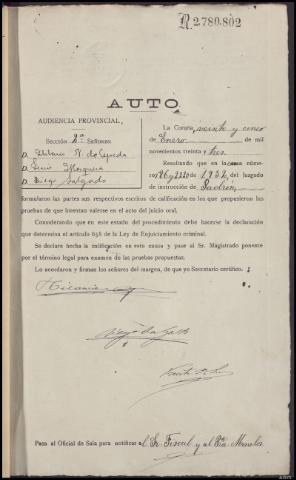 R.2780.802
AUTO
AUDIENCIA PROVINCIAL,
Sección 2ª Señores
D. N. de Cepeda
D. Mosquera
D. Diego Salgado
La Coruña veinte y cinco
de Enero de mil
novecientos treinta y tres
Resultando que en la causa núme-
ro de 1932 del Juzgado
de instrucción de Padrón,
formularon las partes sus respectivos escritos de calificación en los que propusieron las
pruebas de que intentan valerse en el acto del juicio oral.
Considerando que en este estado del procedimiento debe hacerse la declaración
que determina el artículo 658 de la Ley de Enjuiciamiento criminal.
Se declara hecha la calificación en esta causa y pase al Sr. Magistrado ponente
por el término legal para examen de las pruebas propuestas.
Lo acordaron y firman los señores del margen, de que yo Secretario certifico.
Diego Salgado
Pase al Oficial de Sala para notificar al Sr. Fiscal y al